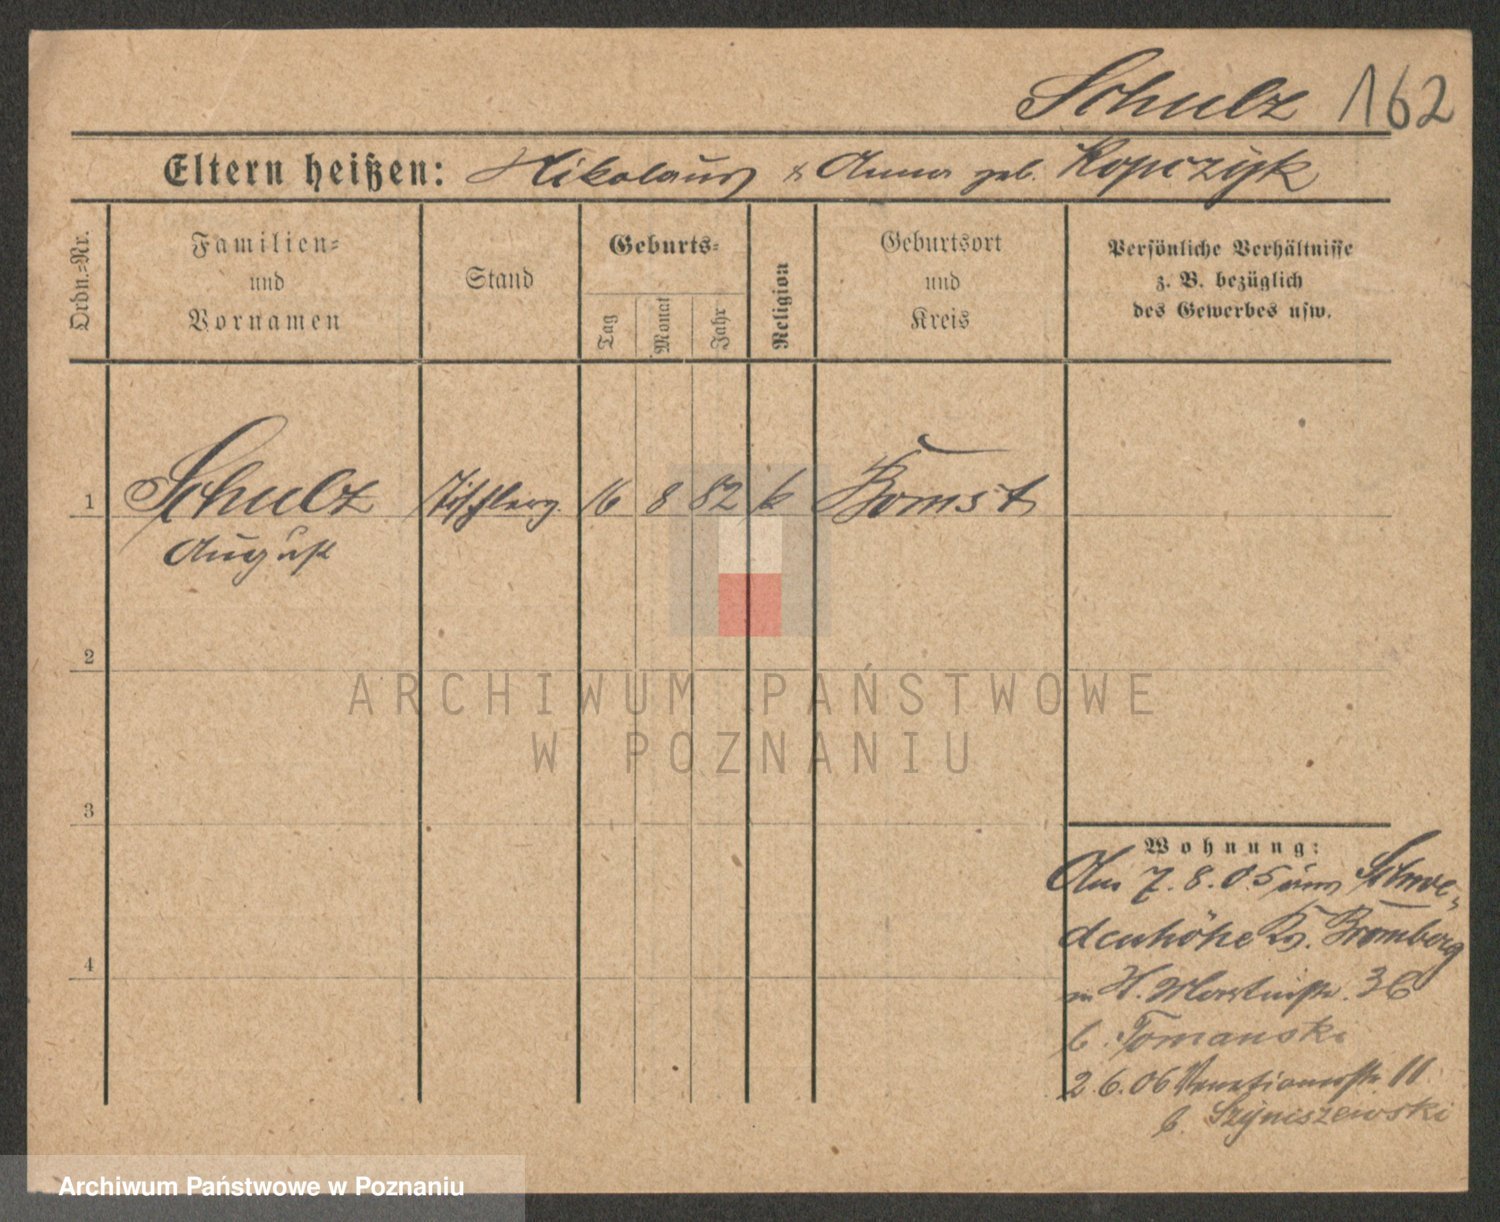 Schulz 162
Eltern heißen: Nikolaus & Anna geb. Kopczyk
Ordn.=Nr.
Familien=
und
Vornamen
Stand
Geburts=
Tag
Monat
Jahr
Religion
Geburtsort
und
Kreis
Persönliche Verhältnisse
z. B. bezüglich
des Gewerbes usw.
1 Schulz Tischlerg. 16 8 82 k Bomst
August
2
3
4
Wohnung:
Am 7.8.05 aus Schwe-
denhöhe Kr. Bromberg
n. 36
b. Tomanski
2.6.06 Venetianerstr. 11
b. Szyniszewski
ARCHIWUM PAŃSTWOWE
W POZNANIU
Archiwum Państwowe w Poznaniu